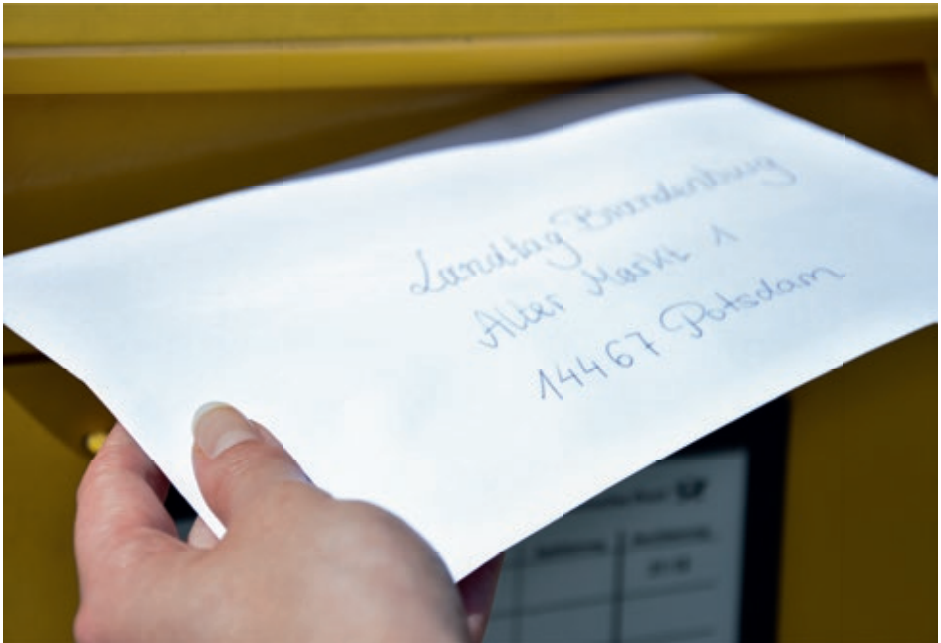 Landtag Brandenburg
Alter Markt 1
14467 Potsdam